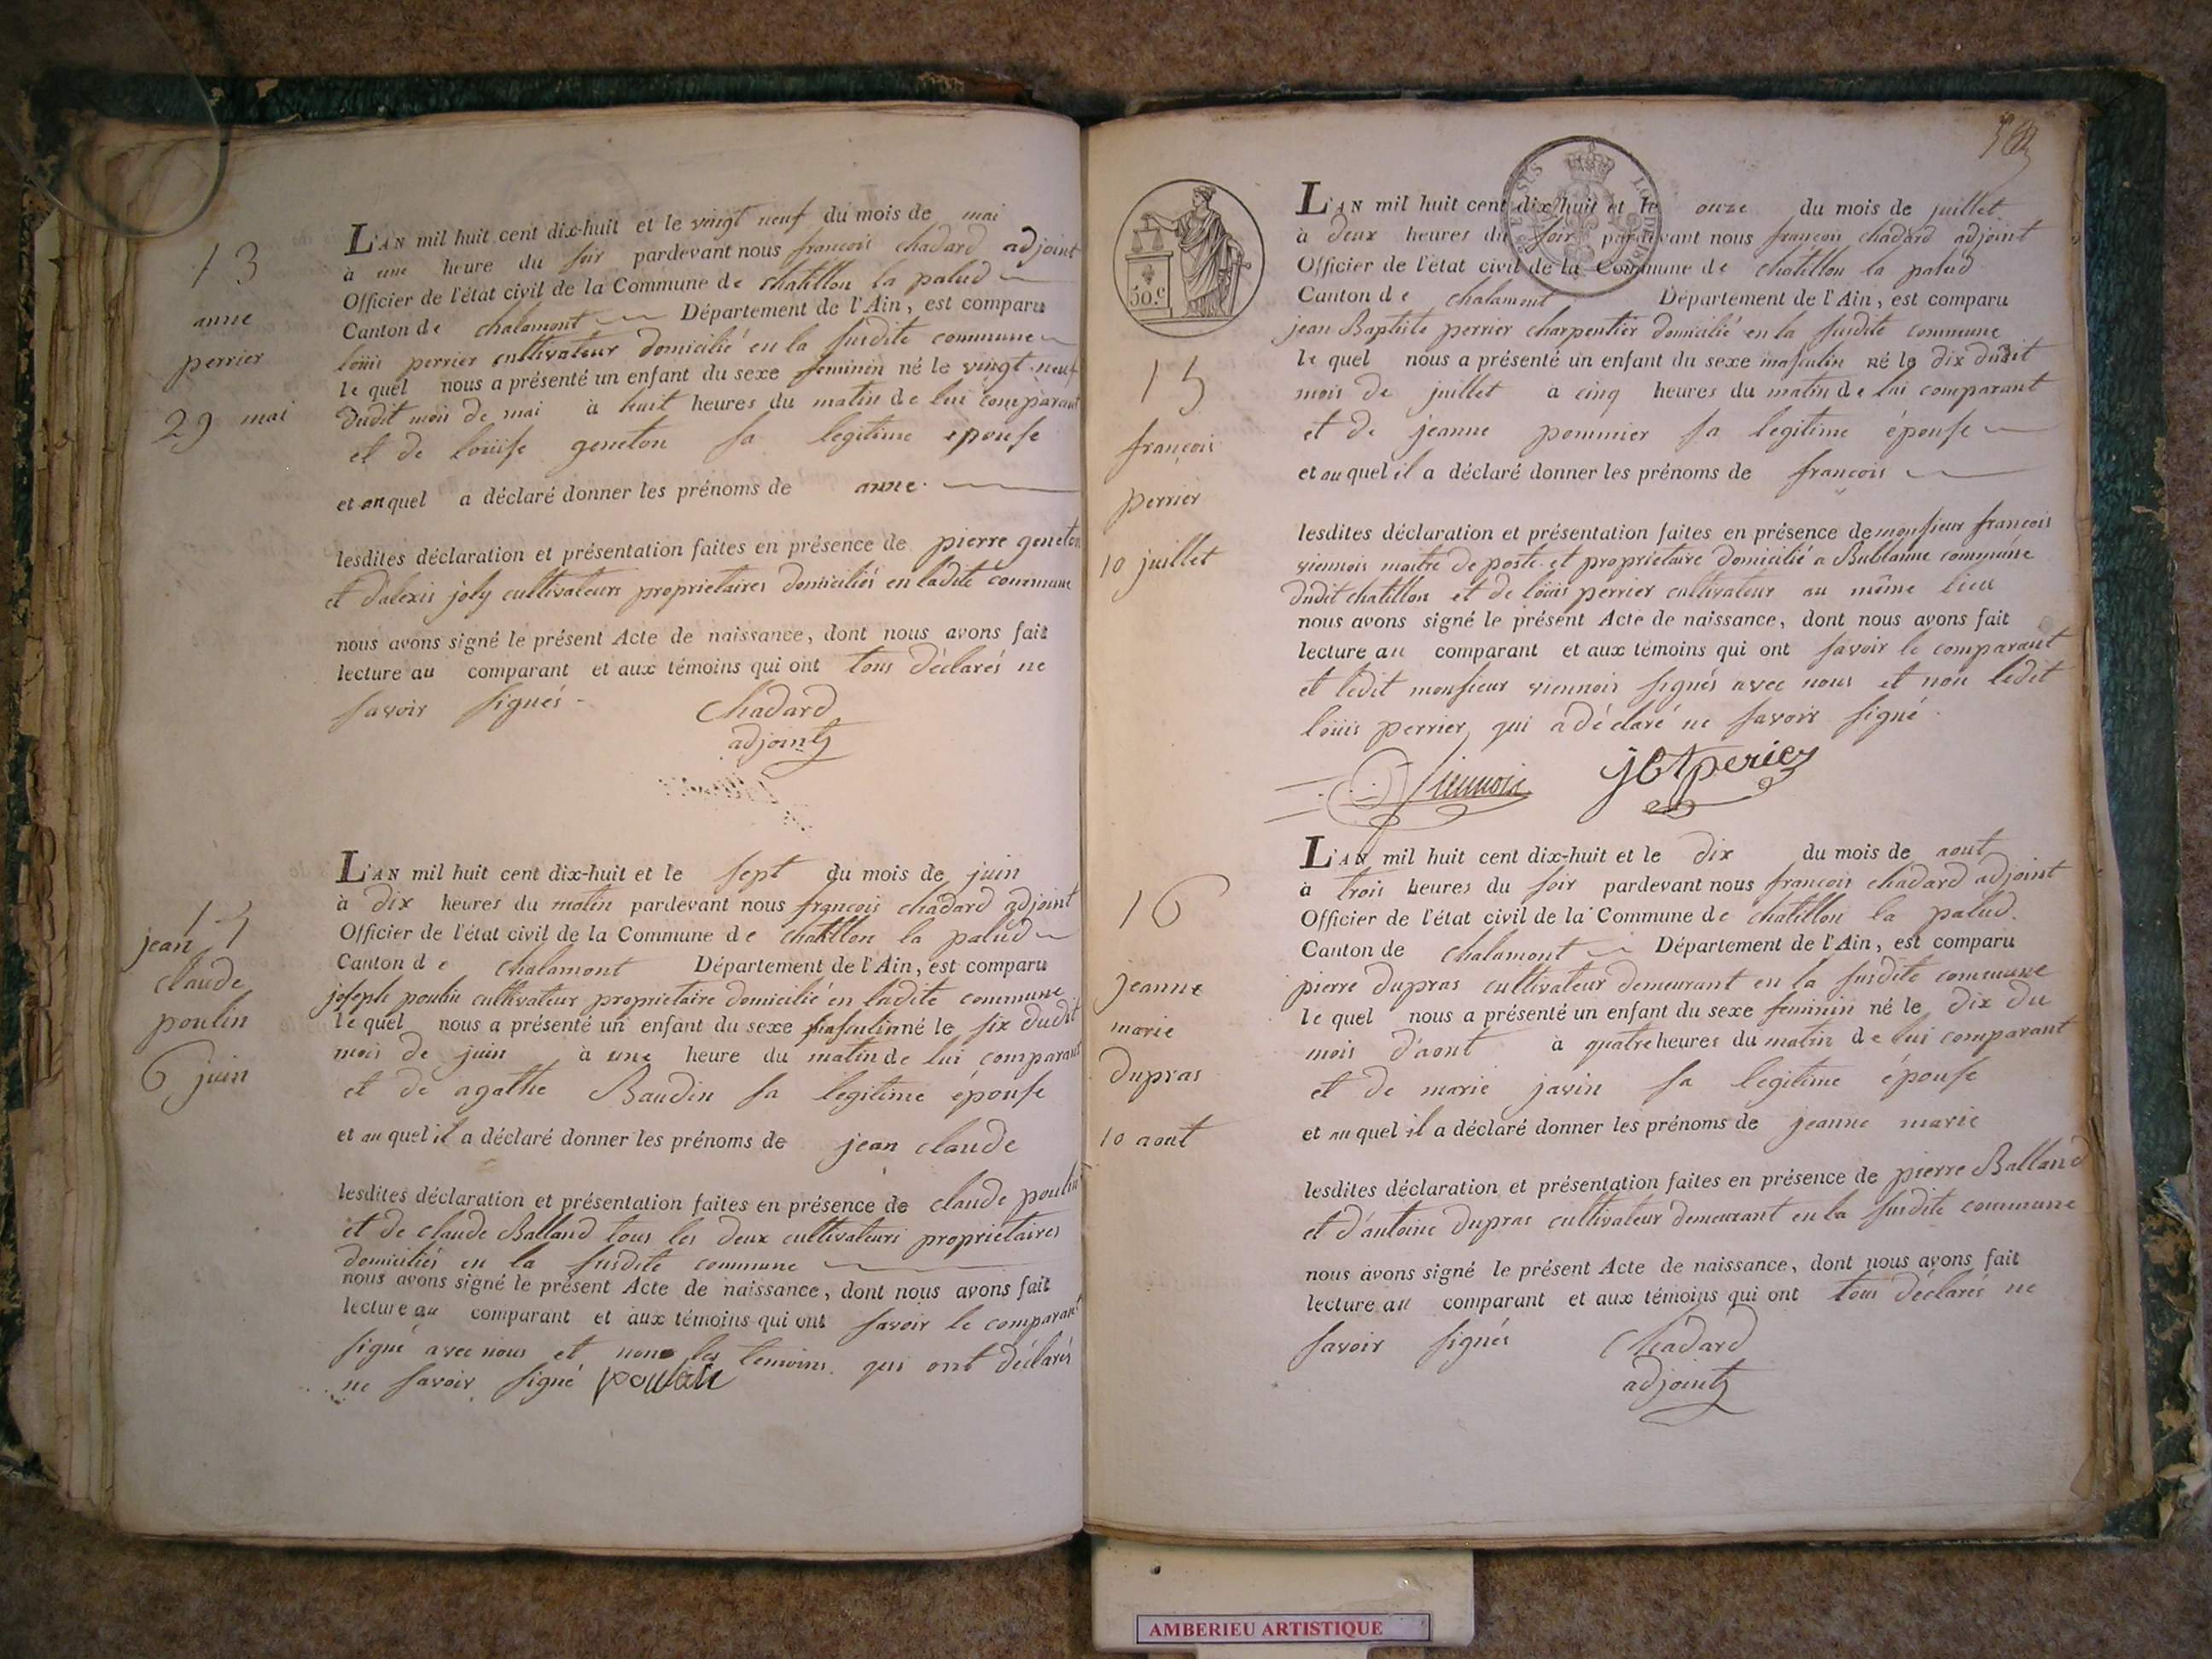 13
anne
perrier
29 mai
L'AN mil huit cent dix-huit et le vingt neuf du mois de mai
à une heure du soir pardevant nous françois chadard adjoint
Officier de l'état civil de la Commune de chatillon la palud
Canton de chalamont Département de l'Ain, est comparu
löuis perrier cultivateur domicilié en la susdite commune
le quel nous a présenté un enfant du sexe feminin né le vingt-neuf
dudit mois de mai à huit heures du matin de lui comparant
et de löuise geneton sa legitime epouse
et auquel a déclaré donner les prénoms de anne.
lesdites déclaration et présentation faites en présence de pierre geneton
et d'alexis joly cultivateurs proprietaires domiciliés en ladite commune
nous avons signé le présent Acte de naissance, dont nous avons fait
lecture au comparant et aux témoins qui ont tous déclarés ne
savoir signés -
Chadard
adjoint
jean
claude
poulin
6 juin
L'AN mil huit cent dix-huit et le sept du mois de juin
à dix heures du matin pardevant nous françois chadard adjoint
Officier de l'état civil de la Commune de chatillon la palud
Canton de chalamont Département de l'Ain, est comparu
joseph poulin cultivateur proprietaire domicilié en ladite commune
le quel nous a présenté un enfant du sexe masculin né le six dudit
mois de juin à une heure du matin de lui comparant
et de agathe Baudin sa legitime épouse
et au quel il a déclaré donner les prénoms de jean claude
lesdites déclaration et présentation faites en présence de claude poulin
et de claude Balland tous les deux cultivateurs proprietaires
domiciliés en la susdite commune
nous avons signé le présent Acte de naissance, dont nous avons fait
lecture au comparant et aux témoins qui ont savoir le comparant
signé avec nous et non les temoins qui ont déclarés
ne savoir signé
50.c
15
françois
perrier
10 juillet
L'AN mil huit cent dix-huit et le onze du mois de juillet
à deux heures du soir pardevant nous françois chadard adjoint
Officier de l'état civil de la Commune de chatillon la palud
Canton de chalamont Département de l'Ain, est comparu
jean Baptiste perrier charpentier domicilié en la susdite commune
le quel nous a présenté un enfant du sexe masculin né le dix dudit
mois de juillet à cinq heures du matin de lui comparant
et de jeanne pommier sa legitime épouse
et au quel il a déclaré donner les prénoms de françois
lesdites déclaration et présentation faites en présence de monsieur françois
viennois maitre de poste et proprietaire domicilié a Bublanne commune
dudit chatillon et de löuis perrier cultivateur au même lieu
nous avons signé le présent Acte de naissance, dont nous avons fait
lecture au comparant et aux témoins qui ont savoir le comparant
et ledit monsieur viennois signés avec nous et non ledit
löuis perrier qui a déclaré ne savoir signé.
Viennois jBtperier
16
jeanne
marie
dupras
10 aout
L'AN mil huit cent dix-huit et le dix du mois de aout
à trois heures du soir pardevant nous françois chadard adjoint
Officier de l'état civil de la Commune de chatillon la palud.
Canton de chalamont Département de l'Ain, est comparu
pierre dupras cultivateur demeurant en la susdite commune
le quel nous a présenté un enfant du sexe feminin né le dix du
mois d'aout à quatre heures du matin de lui comparant
et de marie javin sa legitime épouse
et au quel il a déclaré donner les prénoms de jeanne marie
lesdites déclaration et présentation faites en présence de pierre Balland
et d'antoine dupras cultivateur demeurant en la susdite commune
nous avons signé le présent Acte de naissance, dont nous avons fait
lecture au comparant et aux témoins qui ont tous déclarés ne
savoir signés
Chadard
adjoint
AMBERIEU ARTISTIQUE